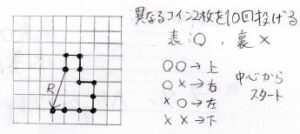 異なるコイン2枚を10回投げる
表:○ , 裏 ×
○○→上
○×→右
×○→左
××→下
中心から
スタート
R